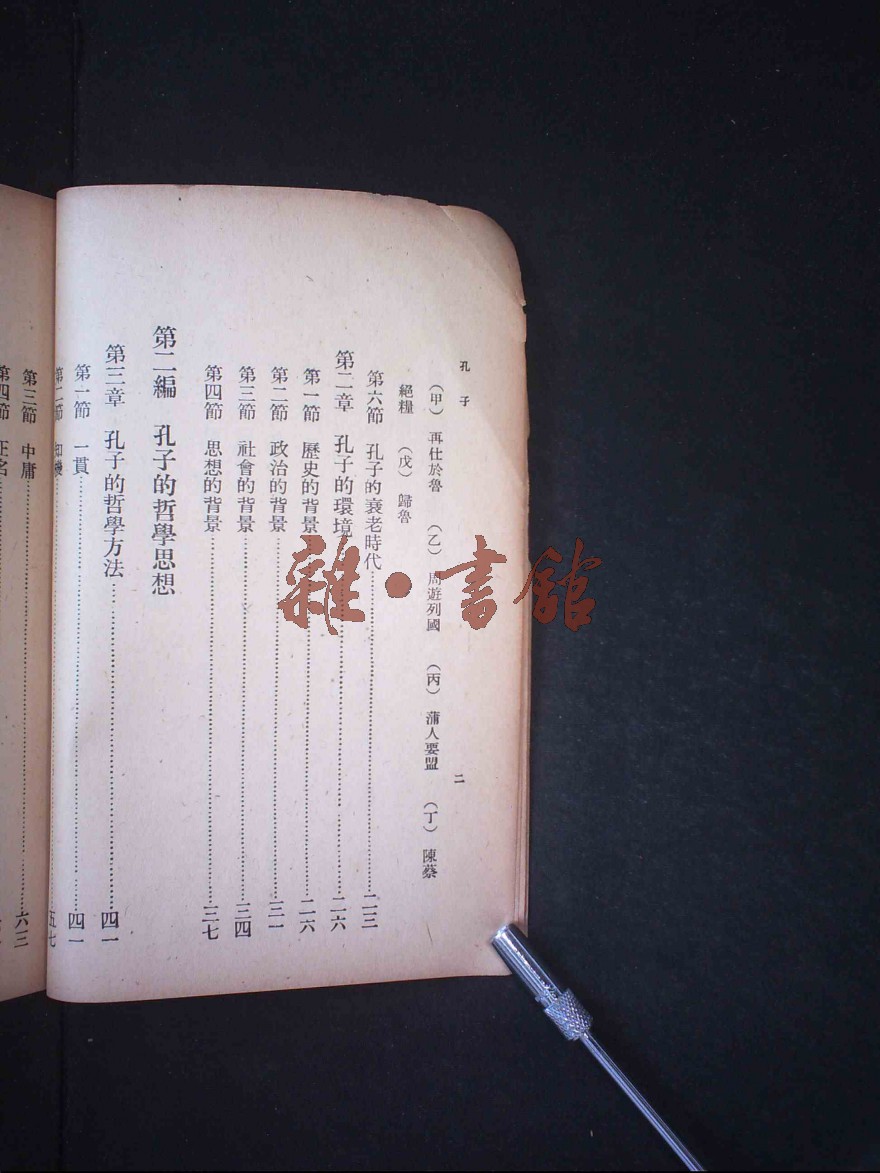 孔子
二
(甲) 再仕於魯 (乙) 周遊列國 (丙) 蒲人要盟 (丁) 陳蔡
絕糧 (戊) 歸魯
第六節 孔子的衰老時代……二三
第二章 孔子的環境……二六
第一節 歷史的背景……二六
第二節 政治的背景……三一
第三節 社會的背景……三四
第四節 思想的背景……三七
第二編 孔子的哲學思想
第三章 孔子的哲學方法……四一
第一節 一貫……四一
第二節……五七
第三節 中庸……六三
第四節 正名
雜·書館